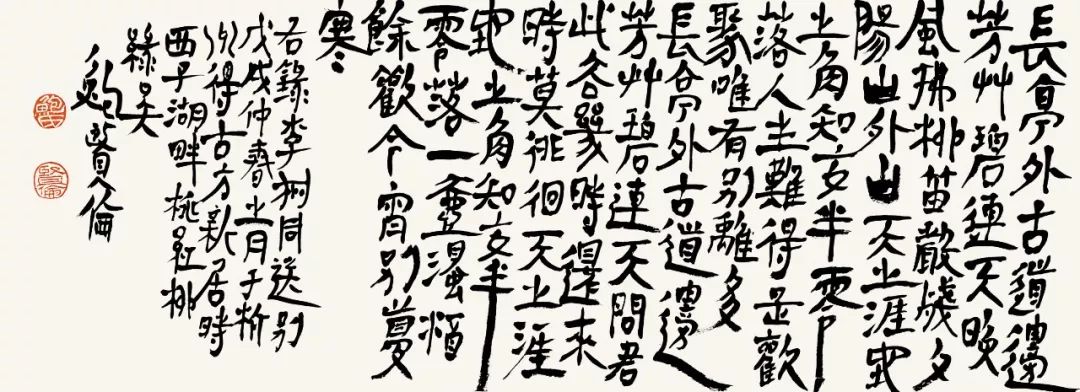 長亭外古道邊
芳艸碧連天晚
風拂柳笛聲殘夕
陽山外山天之涯地
之角知交半零
落人生難得是歡
聚唯有別離多
長亭外古道邊
芳艸碧連天問君
此去幾時還來
時莫徘徊天之涯
地之角知交半
零落一壺濁酒
餘歡今宵別夢
寒
右錄李叔同送別
戊戌仲春之月于杭
州得古方新居時
西子湖畔桃紅柳
綠矣
鮑賢倫
鮑氏
賢倫